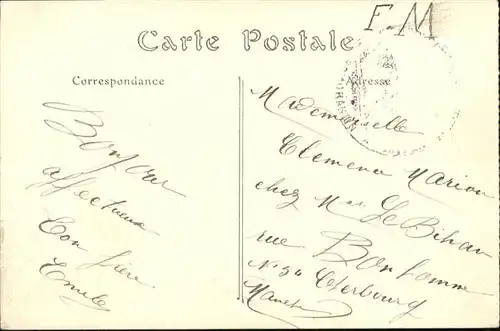 F. M
Carte Postale
Correspondance
Adresse
Bonjour
affectueux
Ton frère
Emile
Mademoiselle
Clemena Marion
chez Mme Le Bihan
rue Bonhomme
No 34 Cherbourg
Manche